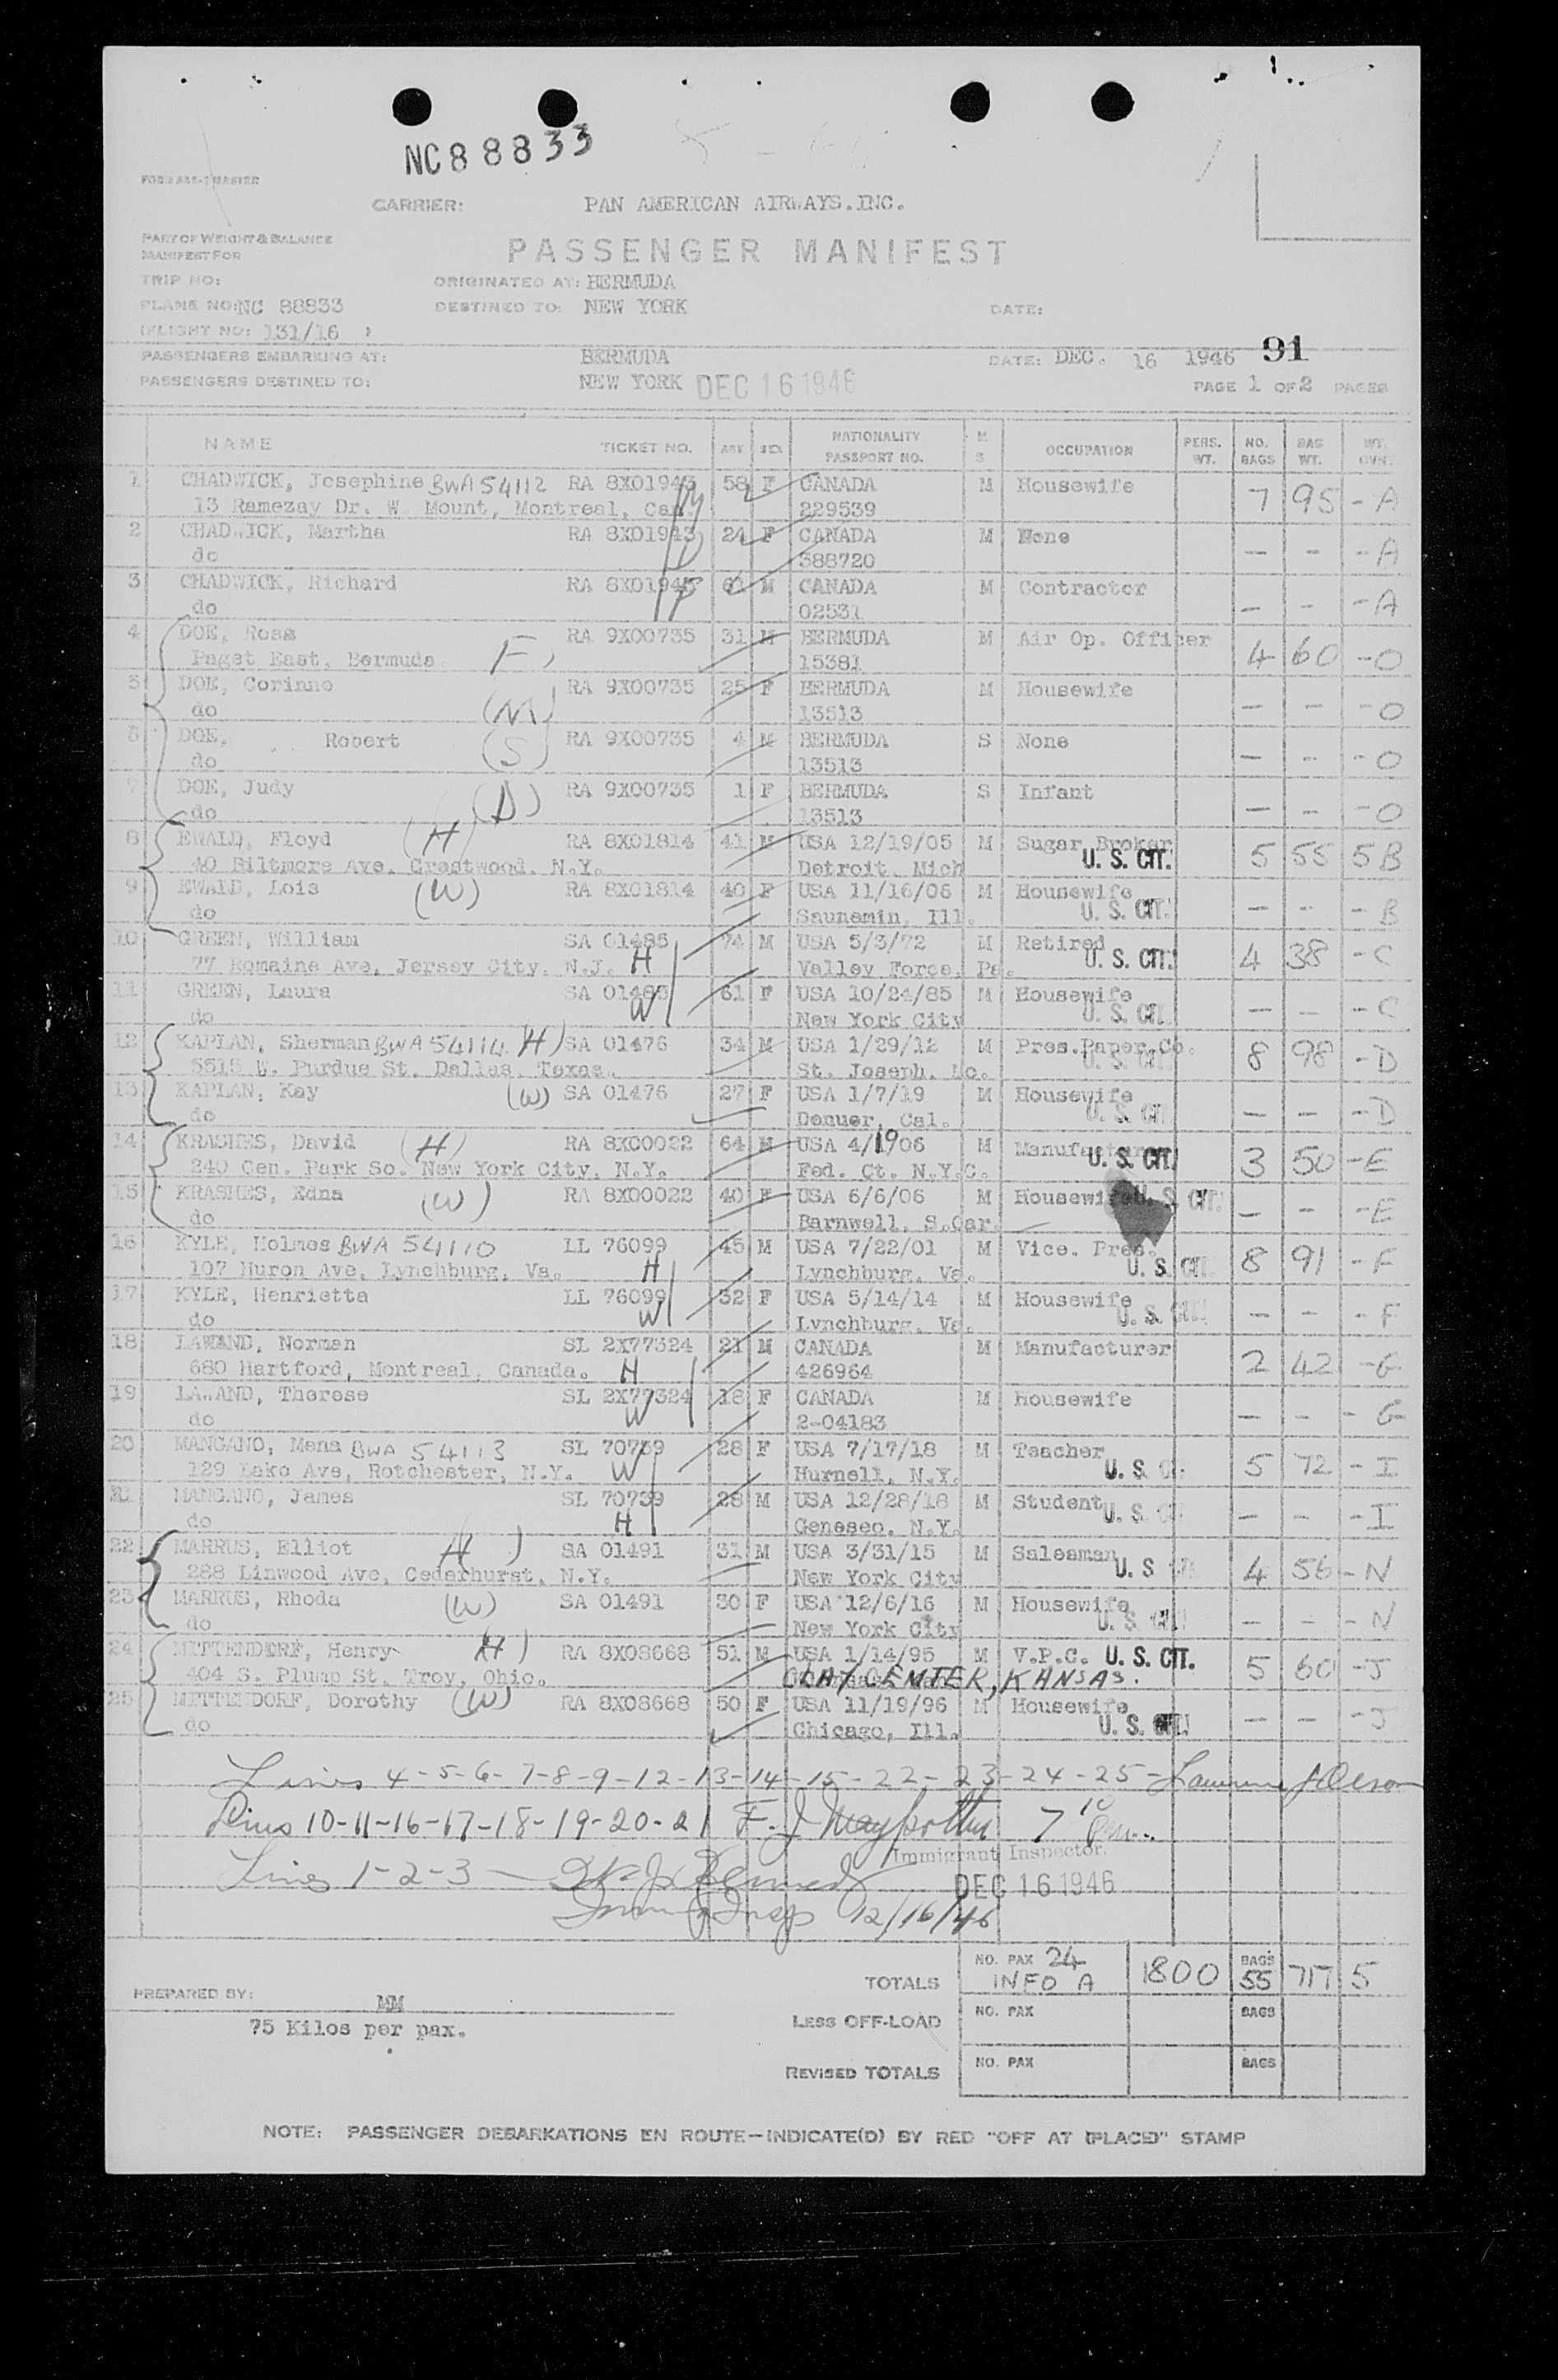 NC88833
CARRIER: PAN AMERICAN AIRWAYS.INC.
PART OF WEIGHT & BALANCE
MANIFEST FOR
PASSENGER MANIFEST
TRIP NO: ORIGINATED AT: BERMUDA
PLANE NO: NC 88833 DESTINED TO: NEW YORK DATE:
(FLIGHT NO: 131/16 )
PASSENGERS EMBARKING AT: BERMUDA DATE: DEC. 16 1946 91
PASSENGERS DESTINED TO: NEW YORK DEC 16 1946 PAGE 1 OF 2 PAGES
NAME TICKET NO. AGE SEX NATIONALITY PASSPORT NO. M S OCCUPATION PERS. WT. NO. BAGS BAG WT. WT. OVR.
1 CHADWICK, Josephine BWA 54112 RA 8X01943 58 F CANADA M Housewife 7 95 - A
13 Ramezay Dr. W. Mount, Montreal, Can. 229539
2 CHADWICK, Martha RA 8X01943 24 F CANADA M None — - - A
do 388720
3 CHADWICK, Richard RA 8X01943 M CANADA M Contractor — - - A
do 02531
4 DOE, Ross F) RA 9X00735 31 M BERMUDA M Air Op. Officer 4 60 - O
Paget East, Bermuda 15381
5 DOE, Corinne (M) RA 9X00735 25 F BERMUDA M Housewife — - - O
do 13513
6 DOE, Robert (S) RA 9X00735 4 M BERMUDA S None — - - O
do 13513
7 DOE, Judy (D) RA 9X00735 1 F BERMUDA S Infant — - - O
do 13513
8 EWALD, Floyd (H) RA 8X01814 41 M USA 12/19/05 M Sugar Broker U. S. CIT. 5 55 5 B
40 Biltmore Ave. Crestwood. N.Y. Detroit. Mich
9 EWALD, Lois (W) RA 8X01814 40 F USA 11/16/06 M Housewife U. S. CIT. — - - B
do Saunemin, Ill.
10 GREEN, William SA 01485 74 M USA 5/3/72 M Retired U. S. CIT. 4 38 - C
77 Romaine Ave, Jersey City. N.J. H Valley Forge. Pa.
11 GREEN, Laura SA 01485 61 F USA 10/24/85 M Housewife U. S. CIT. — — - C
do W New York City
12 KAPLAN, Sherman BWA 54114 H) SA 01476 34 M USA 1/29/12 M Pres.Paper.Co. U. S. CIT 8 98 - D
5515 W. Purdue St. Dallas. Texas. St. Joseph. Mo.
13 KAPLAN, Kay (W) SA 01476 27 F USA 1/7/19 M Housewife U. S. CIT — — - D
do Denuer, Cal.
14 KRASHES, David (H) RA 8X00022 64 M USA 4/1906 M Manufacturer U. S. CIT. 3 50 - E
240 Cen. Park So. New York City, N.Y. Fed. Ct. N.Y.C.
15 KRASHES, Edna (W) RA 8X00022 40 F USA 6/6/06 M Housewife U. S. CIT. — - - E
do Barnwell, S.Car.
16 KYLE, Holmes BWA 54110 LL 76099 45 M USA 7/22/01 M Vice. Pres. U. S. CIT. 8 91 - F
107 Huron Ave, Lynchburg, Va. H Lynchburg, Va.
17 KYLE, Henrietta LL 76099 32 F USA 5/14/14 M Housewife U. S. CIT. — - - F
do W Lynchburg. Va.
18 LAWAND, Norman SL 2X77324 21 M CANADA M Manufacturer 2 42 - G
680 Hartford, Montreal, Canada. H 426964
19 LAWAND, Therese SL 2X77324 18 F CANADA M Housewife — - - G
do W 2-04183
20 MANGANO, Mena BWA 54113 SL 70739 28 F USA 7/17/18 M Teacher U. S. CI 5 72 - I
129 Lake Ave, Rotchester, N.Y. W Hurnell, N.Y.
21 MANGANO, James SL 70739 28 M USA 12/28/18 M Student U. S. CI — - - I
do H Geneseo. N.Y.
22 MARRUS, Elliot H) SA 01491 31 M USA 3/31/15 M Salesman U. S 4 56 - N
288 Linwood Ave, Cedarhurst, N.Y. New York City
23 MARRUS, Rhoda (W) SA 01491 30 F USA 12/6/16 M Housewife U. S. CIT. — - - N
do New York City
24 MITTENDORF, Henry (H) RA 8X08668 51 M USA 1/14/95 M V.P.C. U. S. CIT. 5 60 - J
404 S. Plump St. Troy, Ohio. CLAY CENTER, KANSAS.
25 MITTENDORF, Dorothy (W) RA 8X08668 50 F USA 11/19/96 M Housewife U. S. CIT. — - - J
do Chicago, Ill.
Lines 4-5-6-7-8-9-12-13-14-15-22-23-24-25-
Lines 10-11-16-17-18-19-20-21 F. J 7 10 Pm.
Immigrant Inspector.
Lines 1-2-3 —
DEC 16 1946
Immig Insp 12/16/46
TOTALS NO. PAX 24 INFO A 1800 BAGS 55 717 5
PREPARED BY: MM
75 Kilos per pax.
LESS OFF-LOAD NO. PAX BAGS
REVISED TOTALS NO. PAX BAGS
NOTE: PASSENGER DEBARKATIONS EN ROUTE—INDICATE(D) BY RED "OFF AT (PLACE)" STAMP